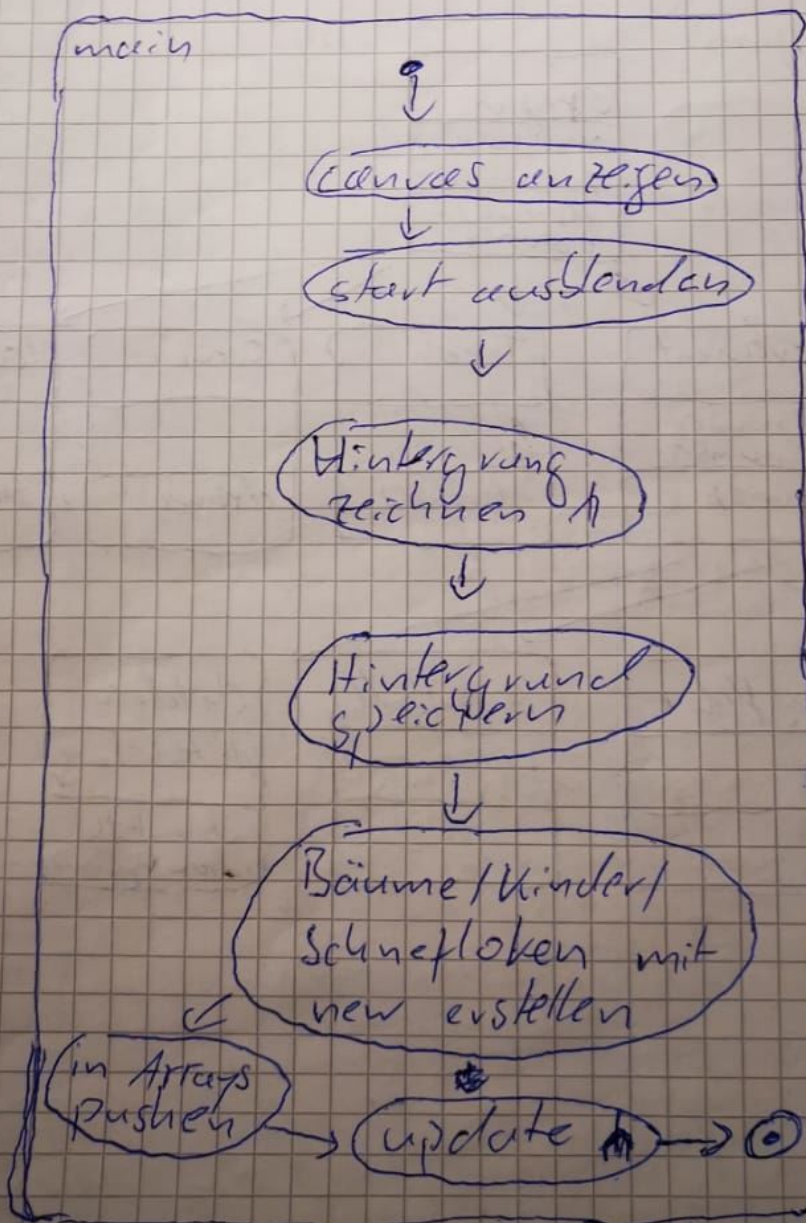 main
canvas anzeigen
start ausblenden
Hintergrung
zeichnen
Hintergrund
speichern
Bäume/Kinder/
Schnefloken mit
new erstellen
in Arrays
pushen
update